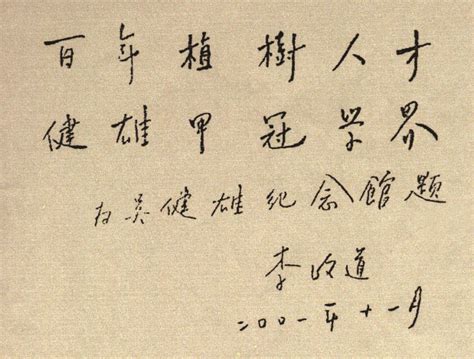 百年植樹人才
健雄甲冠学界
为吴健雄纪念館题
李政道
二〇〇一年十一月